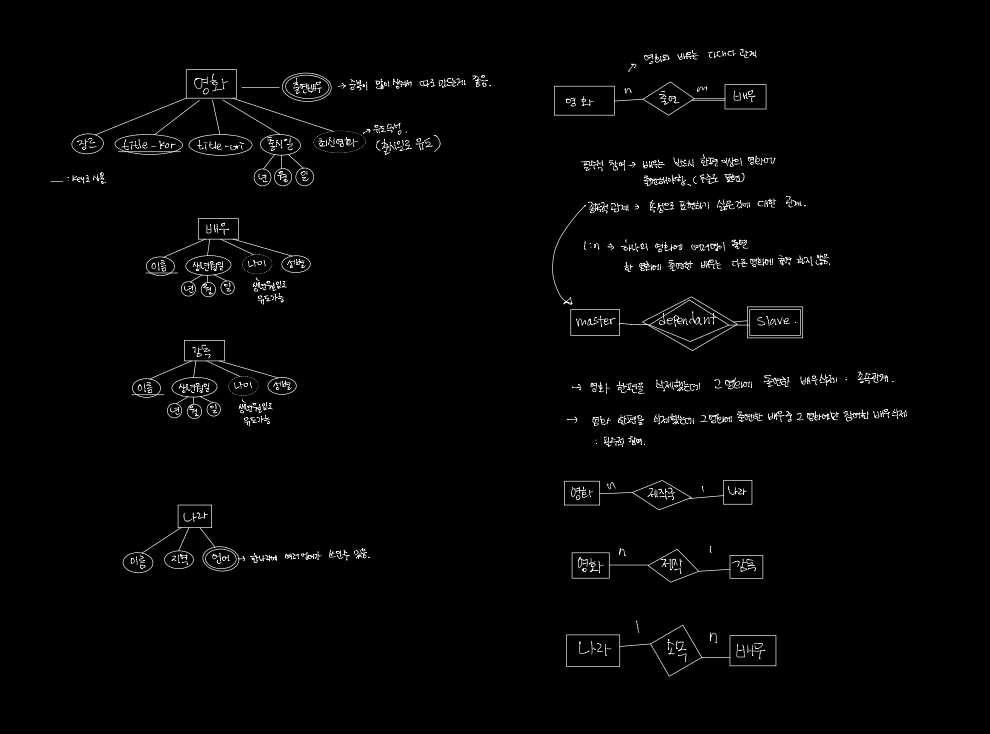 영화
출연배우 → 중복이 많이 생겨서 따로 만드는게 좋음.
장르
title-kor
title-ori
출시일
최신영화
→ 유도속성.
(출시일로 유도)
년 월 일
__ : key로 사용
배우
이름
생년월일
나이
성별
년 월 일
생년월일로
유도가능
감독
이름
생년월일
나이
성별
년 월 일
생년월일로
유도가능
나라
이름
지역
언어 → 한나라에 여러 언어가 쓰일수 있음.
영화와 배우는 다대다 관계
영화 n 출연 m 배우
필수적 참여 → 배우는 반드시 한편 이상의 영화에
출연해야함. (두줄로 표현)
종속적 관계 → 속성으로 표현하기 싫은것에 대한 관계.
1:n → 하나의 영화에 여러명이 출연
한 영화에 출연한 배우는 다른 영화에 출연 하지 않음.
master dependant slave.
→ 영화 한편을 삭제했는데 그 영화에 출연한 배우삭제 : 종속관계.
→ 영화 한편을 삭제했는데 그 영화에 출연한 배우중 그 영화에만 참여한 배우삭제
: 필수적 참여.
영화 n 제작국 1 나라
영화 n 제작 1 감독
나라 1 소속 n 배우